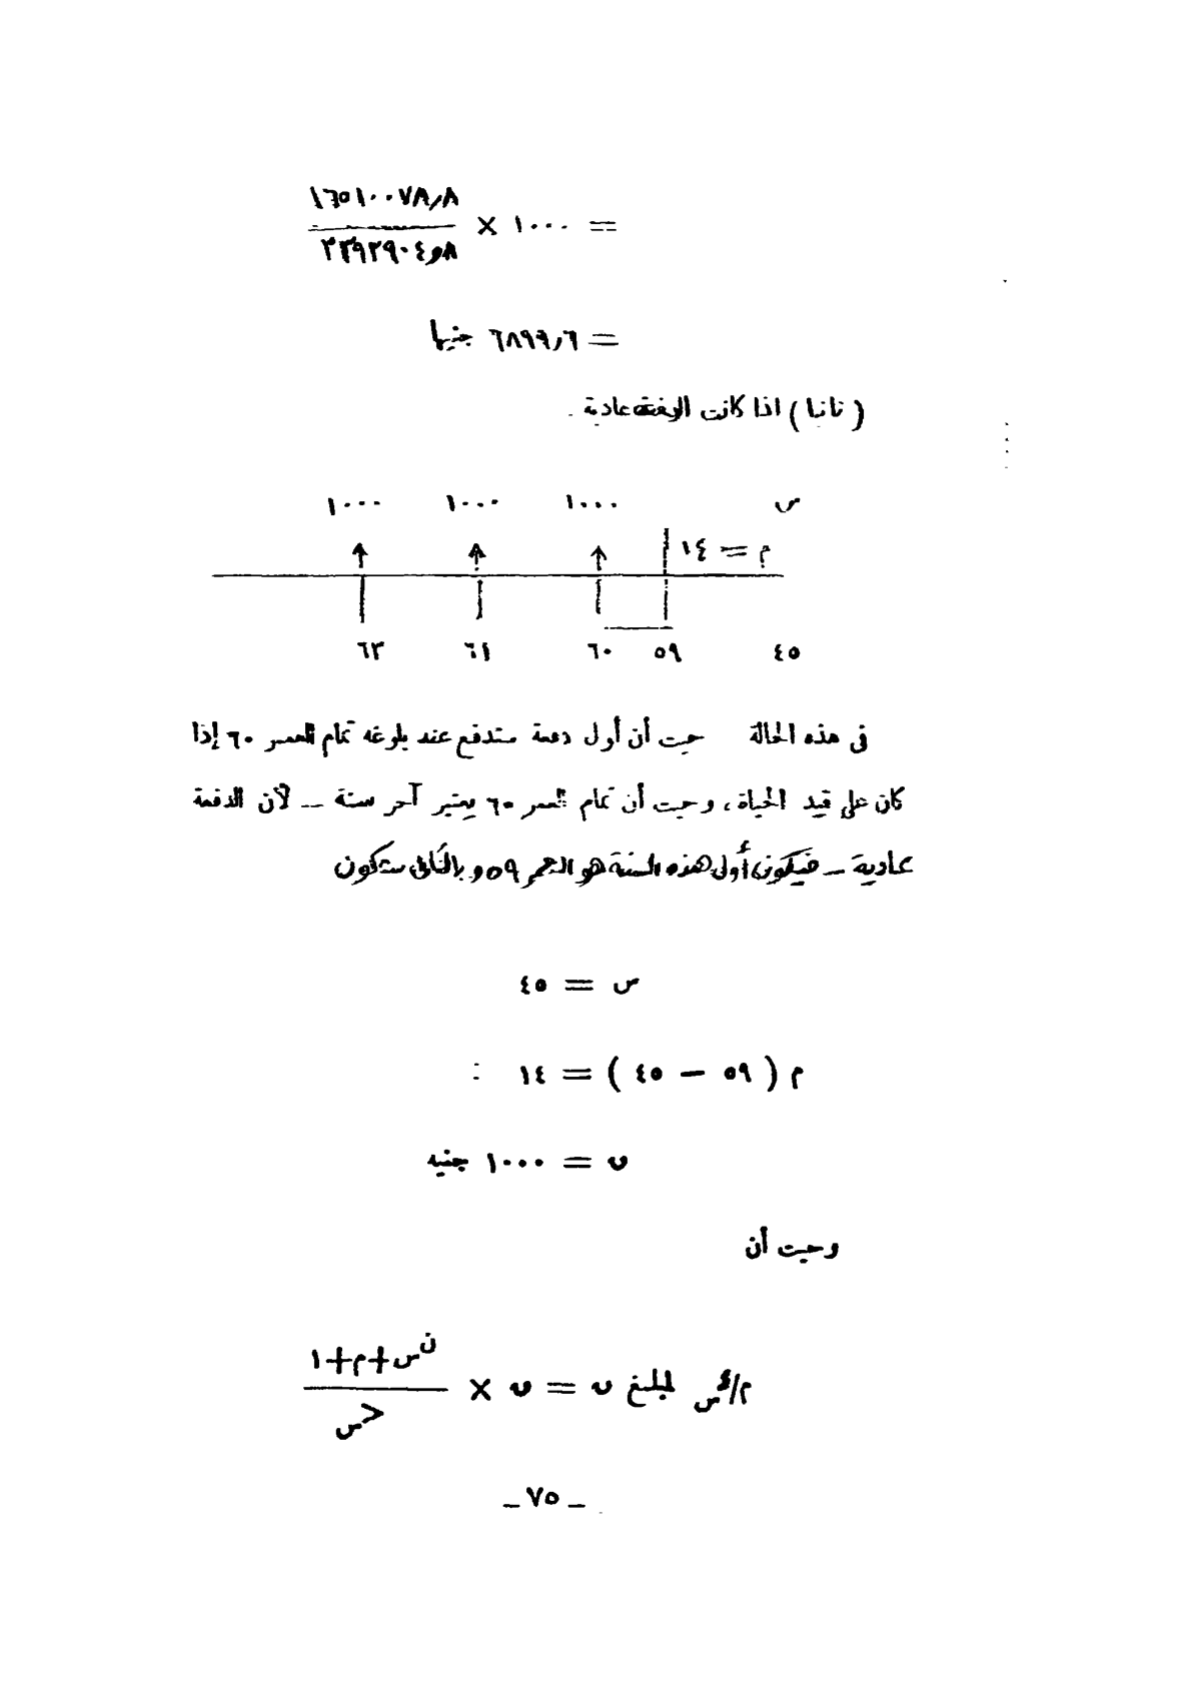 = ١٠٠٠ × ١٦٥١٠٠٧٨٫٨ / ٢٣٩٢٩٠٤٫٨
= ٦٨٩٩٫٦ جنيها
( ثانيا ) اذا كانت الدفعة عادية .
س ١٠٠٠ ١٠٠٠ ١٠٠٠
م = ١٤
٤٥ ٥٩ ٦٠ ٦١ ٦٣
فى هذه الحالة حيث أن أول دفعة ستدفع عند بلوغه تمام العمر ٦٠ إذا
كان على قيد الحياة ، وحيث أن تمام العمر ٦٠ يعتبر آخر سنة — لأن الدفعة
عادية — فيكون أول هذه السنة هو العمر ٥٩ وبالتالى ستكون
س = ٤٥
م ( ٥٩ — ٤٥ ) = ١٤ :
ں = ١٠٠٠ جنيه
وحيث أن
م/ء س لمبلغ ں = ں × ن س+م+١ / ء س
— ٧٥ —